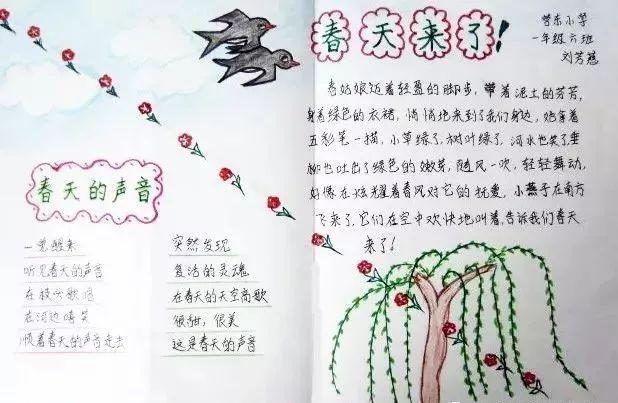 春天的声音
一觉醒来
听见春天的声音
在枝头歌唱
在河边嘻笑
顺着春天的声音走去
突然发现
复活的灵魂
在春天的天空高歌
很甜，很美
这是春天的声音
春天来了！
营东小学
一年级六班
刘芳
春姑娘迈着轻盈的脚步，带着泥土的芳芳，
身着绿色的衣裙，悄悄地来到了我们身边，她拿着
五彩笔一描，小草绿了，树叶绿了，河水也笑了，垂
柳也吐出了绿色的嫩芽，随风一吹，轻轻舞动，
好像在炫耀着春风对它的抚爱，小燕子在南方
飞来了，它们在空中欢快地叫着，告诉我们春天
来了！